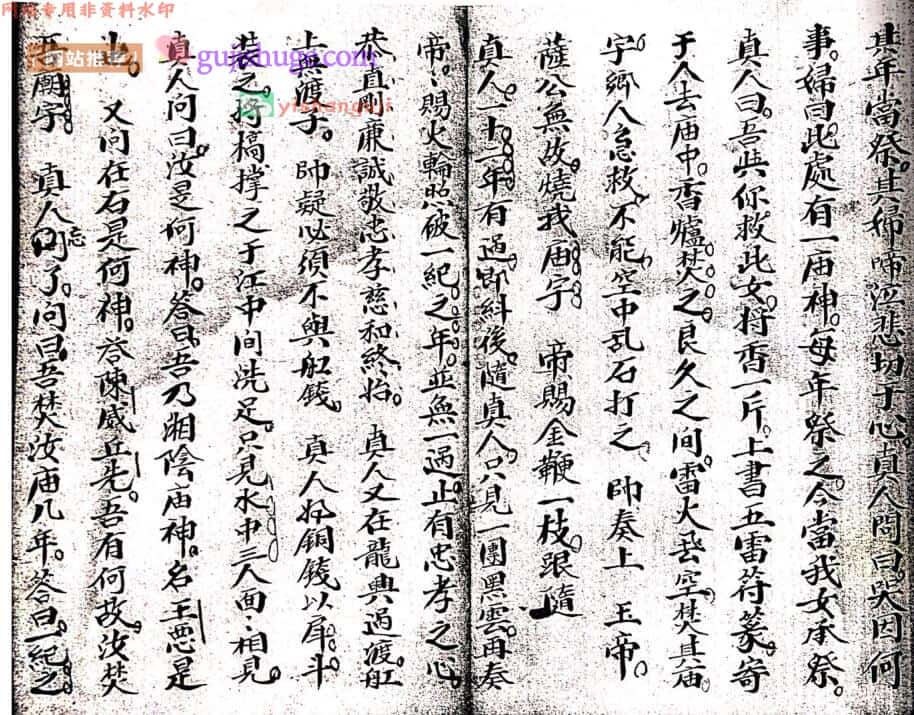 其年當祭。其婦啼泣悲切于心。真人問曰哭因何
事。婦曰此處有一庙神。每年祭之今當我女承祭。
真人曰。吾共你救此女。将香一斤。上書五雷符篆。寄
于人去庙中。香爐焚之。良久之间雷火飛空焚其庙
宇鄉人怠救不能。空中乱石打之。帥奏上 玉帝。
薩公無故。燒我庙宇。 帝賜金鞭一枝跟随
真人。一十二年有過即糾後。隨真人。只見一團黑雲。再奏
帝〻賜火輪照破一紀之年。並無一過。止有忠孝之心
恭直剛廉誠敬忠孝慈和終始。 真人又在龍興過渡。舡
上無渡子。帥疑必須不與舡錢。 真人好銅錢以犀斗
裝之。将槁撑之于江中间洗足。只見水中三人面〻相見
真人问曰汝是何神。答曰。吾乃湘陰庙神。名王惡是
也。 又问在石是何神。答陳威丘先。吾有何故汝焚
吾廟宇 真人忘了。问曰。吾焚汝庙几年。答曰。一紀之
网站专用非资料水印
网站推荐
gujishuge.com
yishangsji